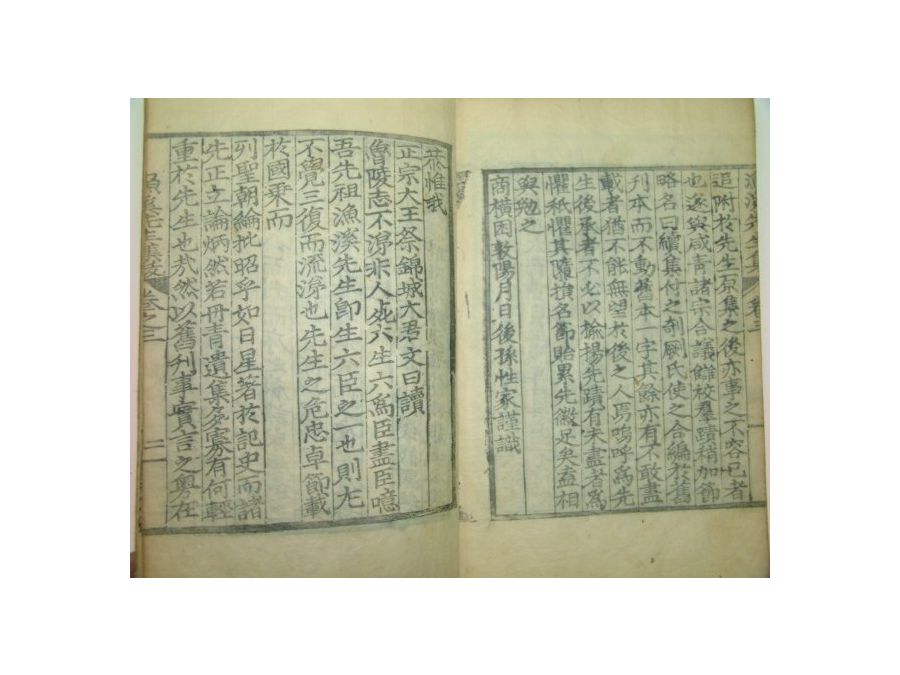 漁溪先生集 卷三
追附於先生原集之後亦事之不容已者
也遂與咸靑諸宗合議讎校羣蹟稍加節
略名曰續集付之剞劂氏使之合編於舊
刊本而不動舊本一字其餘亦有不敢盡
載者猶不能無望於後之人焉嗚呼爲先
生後承者不必以揄揚先蹟有未盡者爲
懼秪懼其隳損名節貽累先徽足矣盍相
與勉之
商橫困敦陽月日後孫性家謹識
恭惟我
正宗大王祭錦城大君文曰讀
魯陵志不涕非人死六生六爲臣盡臣噫
吾先祖漁溪先生卽生六臣之一也則尤
不覺三復而流涕也先生之危忠卓節載
於國乘而
列聖朝綸批昭乎如日星著於記史而諸
先正立論炳然若丹靑遺集多寡有何輕
重於先生也哉然以舊刊事實言之粤在
漁溪先生集跋 卷之三 二